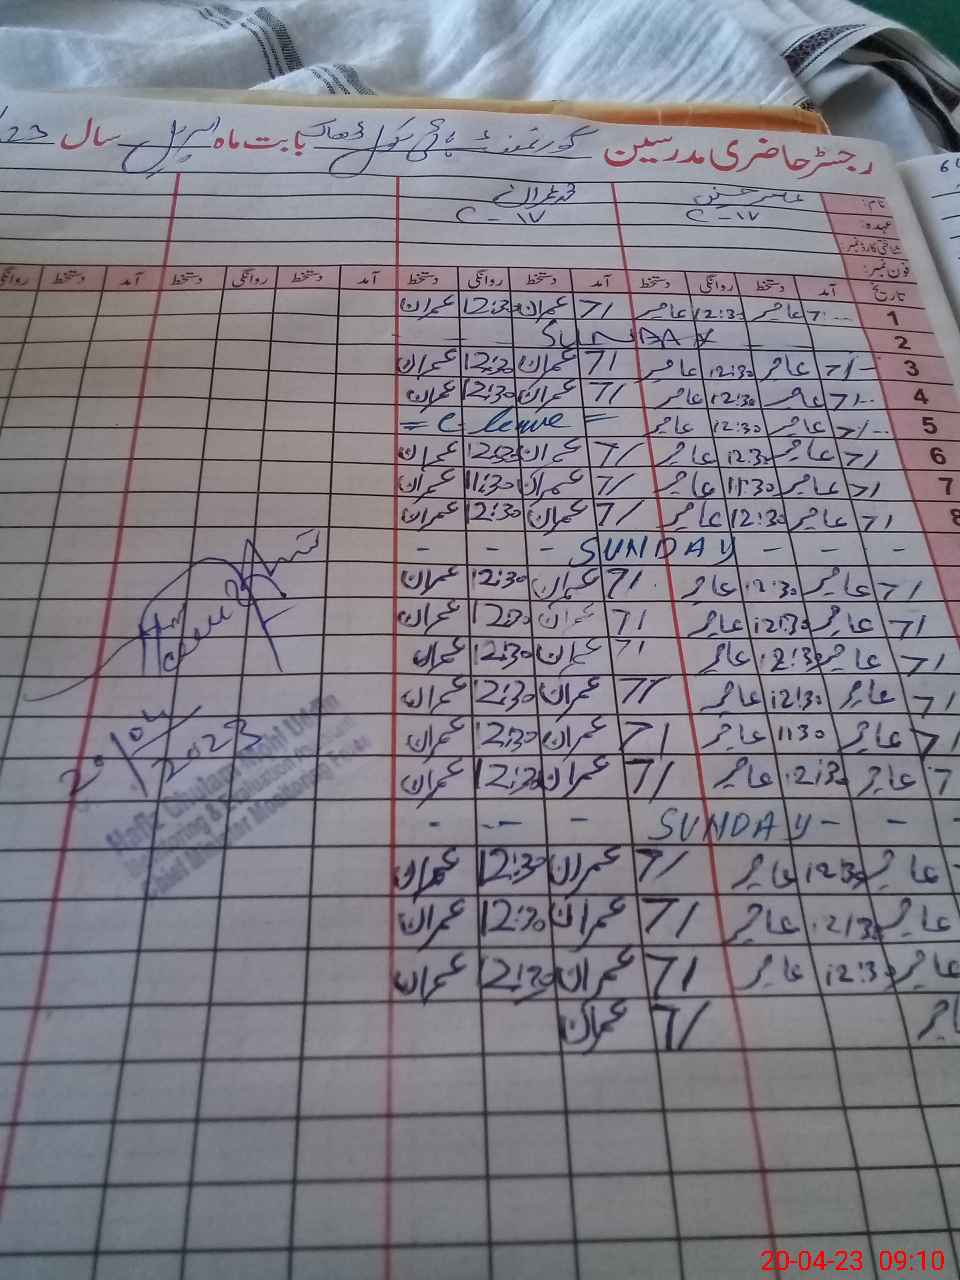 رجسٹر حاضری مدرسین گورنمنٹ ہائی سکول ڈھاک بابت ماہ اپریل سال 23
نام: عامر حسین محمد عمران
عہدہ: C-17 C-17
شناختی کارڈ نمبر:
فون نمبر:
تاریخ آمد دستخط روانگی دستخط آمد دستخط روانگی دستخط آمد دستخط روانگی دستخط آمد دستخط روانگی
1 7/ عامر 12:30 عامر 7/ عمران 12:30 عمران
2 SUNDAY
3 7/ عامر 12:30 عامر 7/ عمران 12:30 عمران
4 7/ عامر 12:30 عامر 7/ عمران 12:30 عمران
5 7/ عامر 12:30 عامر = C-leave =
6 7/ عامر 12:30 عامر 7/ عمران 12:30 عمران
7 7/ عامر 11:30 عامر 7/ عمران 11:30 عمران
8 7/ عامر 12:30 عامر 7/ عمران 12:30 عمران
- - - SUNDAY - - -
7/ عامر 12:30 عامر 7/ عمران 12:30 عمران
7/ عامر 12:30 عامر 7/ عمران 12:30 عمران
7/ عامر 12:30 عامر 7/ عمران 12:30 عمران
7/ عامر 12:30 عامر 7/ عمران 12:30 عمران
7/ عامر 11:30 عامر 7/ عمران 12:30 عمران
7 عامر 12:30 عامر 7/ عمران 12:30 عمران
- - - SUNDAY - -- -
عامر 12:30 عامر 7/ عمران 12:30 عمران
عامر 12:30 عامر 7/ عمران 12:30 عمران
عامر 12:30 عامر 7/ عمران 12:30 عمران
عامر 7/ عمران
20/04/2023
Hafiz Ghulam Mohi Ud-Din
Monitoring & Evaluation
Chief Minister Monitoring
20-04-23 09:10